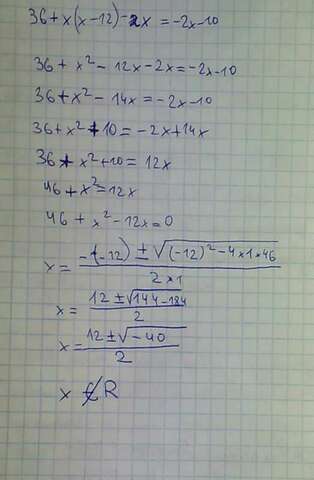 36+x(x-12)-2x = -2x-10
36+x²-12x-2x=-2x-10
36+x²-14x=-2x-10
36+x²+10=-2x+14x
36+x²+10=12x
46+x²=12x
46+x²-12x=0
x= -(-12) ± √(-12)²-4×1×46 / 2×1
x= 12±√144-184 / 2
x= 12±√-40 / 2
x ∉ R